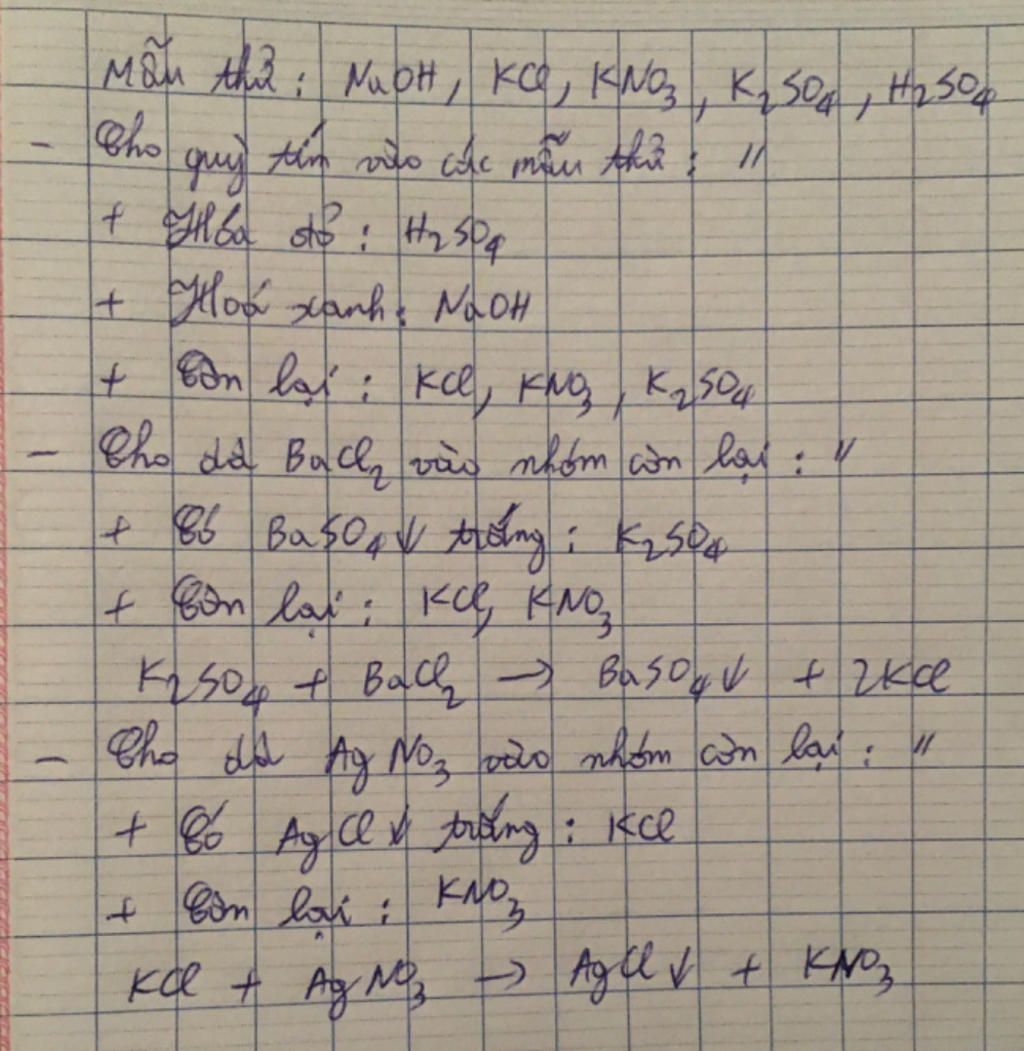 Mẫu thử : NaOH, KCl, KNO₃, K₂SO₄, H₂SO₄
- Cho quỳ tím vào các mẫu thử : "
+ Hóa đỏ : H₂SO₄
+ Hoá xanh : NaOH
+ Còn lại : KCl, KNO₃, K₂SO₄
- Cho dd BaCl₂ vào nhóm còn lại : "
+ Có BaSO₄↓ trắng : K₂SO₄
+ Còn lại : KCl, KNO₃
K₂SO₄ + BaCl₂ → BaSO₄↓ + 2KCl
- Cho dd AgNO₃ vào nhóm còn lại : "
+ Có AgCl↓ trắng : KCl
+ Còn lại : KNO₃
KCl + AgNO₃ → AgCl↓ + KNO₃